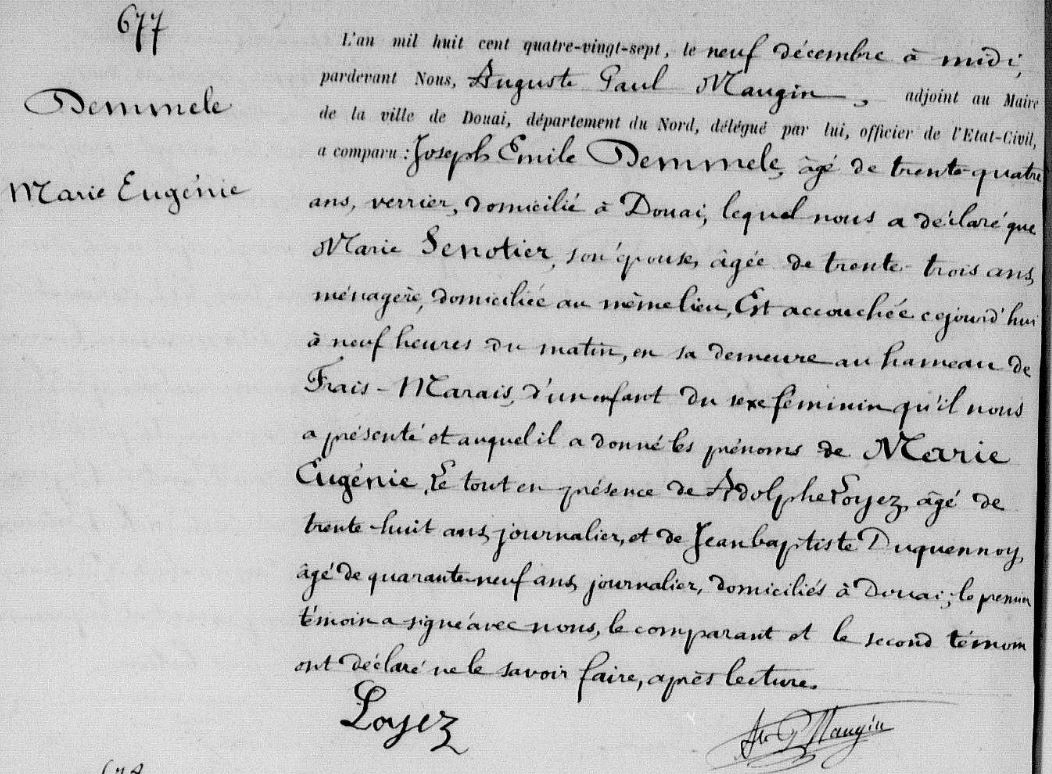 677
Demmele
Marie Eugénie
L'an mil huit cent quatre-vingt-sept, le neuf décembre à midi,
pardevant Nous, Auguste Paul Maugin, adjoint au Maire
de la ville de Douai, département du Nord, délégué par lui, officier de l'Etat-Civil,
a comparu : Joseph Emile Demmele, âgé de trente-quatre
ans, verrier, domicilié à Douai, lequel nous a déclaré que
Marie Senotier, son épouse, âgée de trente-trois ans,
ménagère, domiciliée au même lieu, Est accouchée cejourd'hui
à neuf heures du matin, en sa demeure au hameau de
Frais-Marais, d'un enfant du sexe féminin qu'il nous
a présenté et auquel il a donné les prénoms de Marie
Eugénie, Le tout en présence de Adolphe Loyez, âgé de
trente-huit ans, journalier, et de Jean baptiste Duquennoy,
âgé de quarante-neuf ans, journalier, domiciliés à Douai; le premier
témoin a signé avec nous, le comparant et le second témoin
ont déclaré ne le savoir faire, après lecture.
Loyez
Maugin